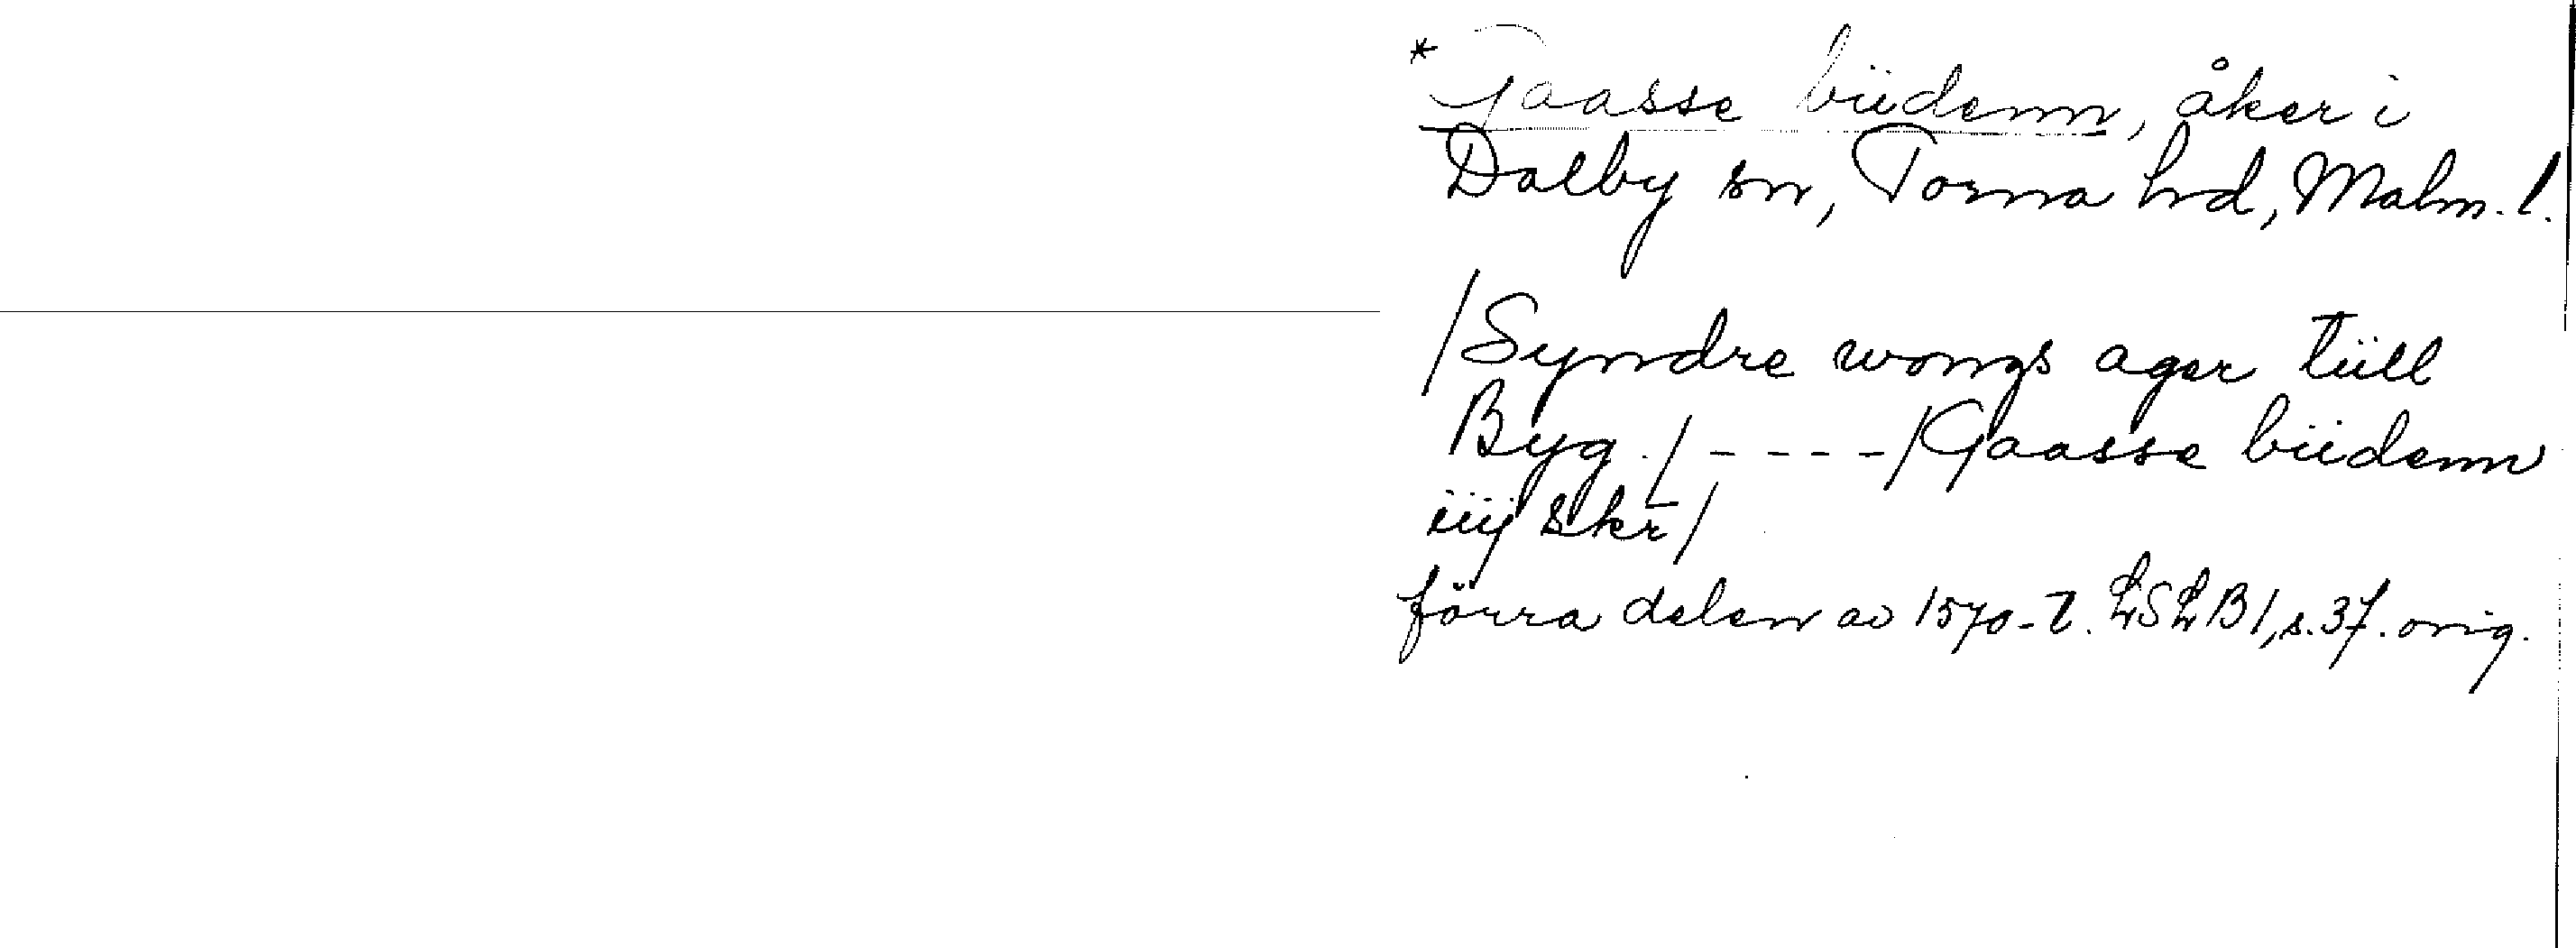 * Gaasse büdenn, åker i
Dalby sn, Torna hd, Malm. l.
/Syndre wongs ager tüll
Byg./----/Gaasse büdenn
iiij skr̄/
förra delen av 1570-t. LSLB1, s. 37. orig.